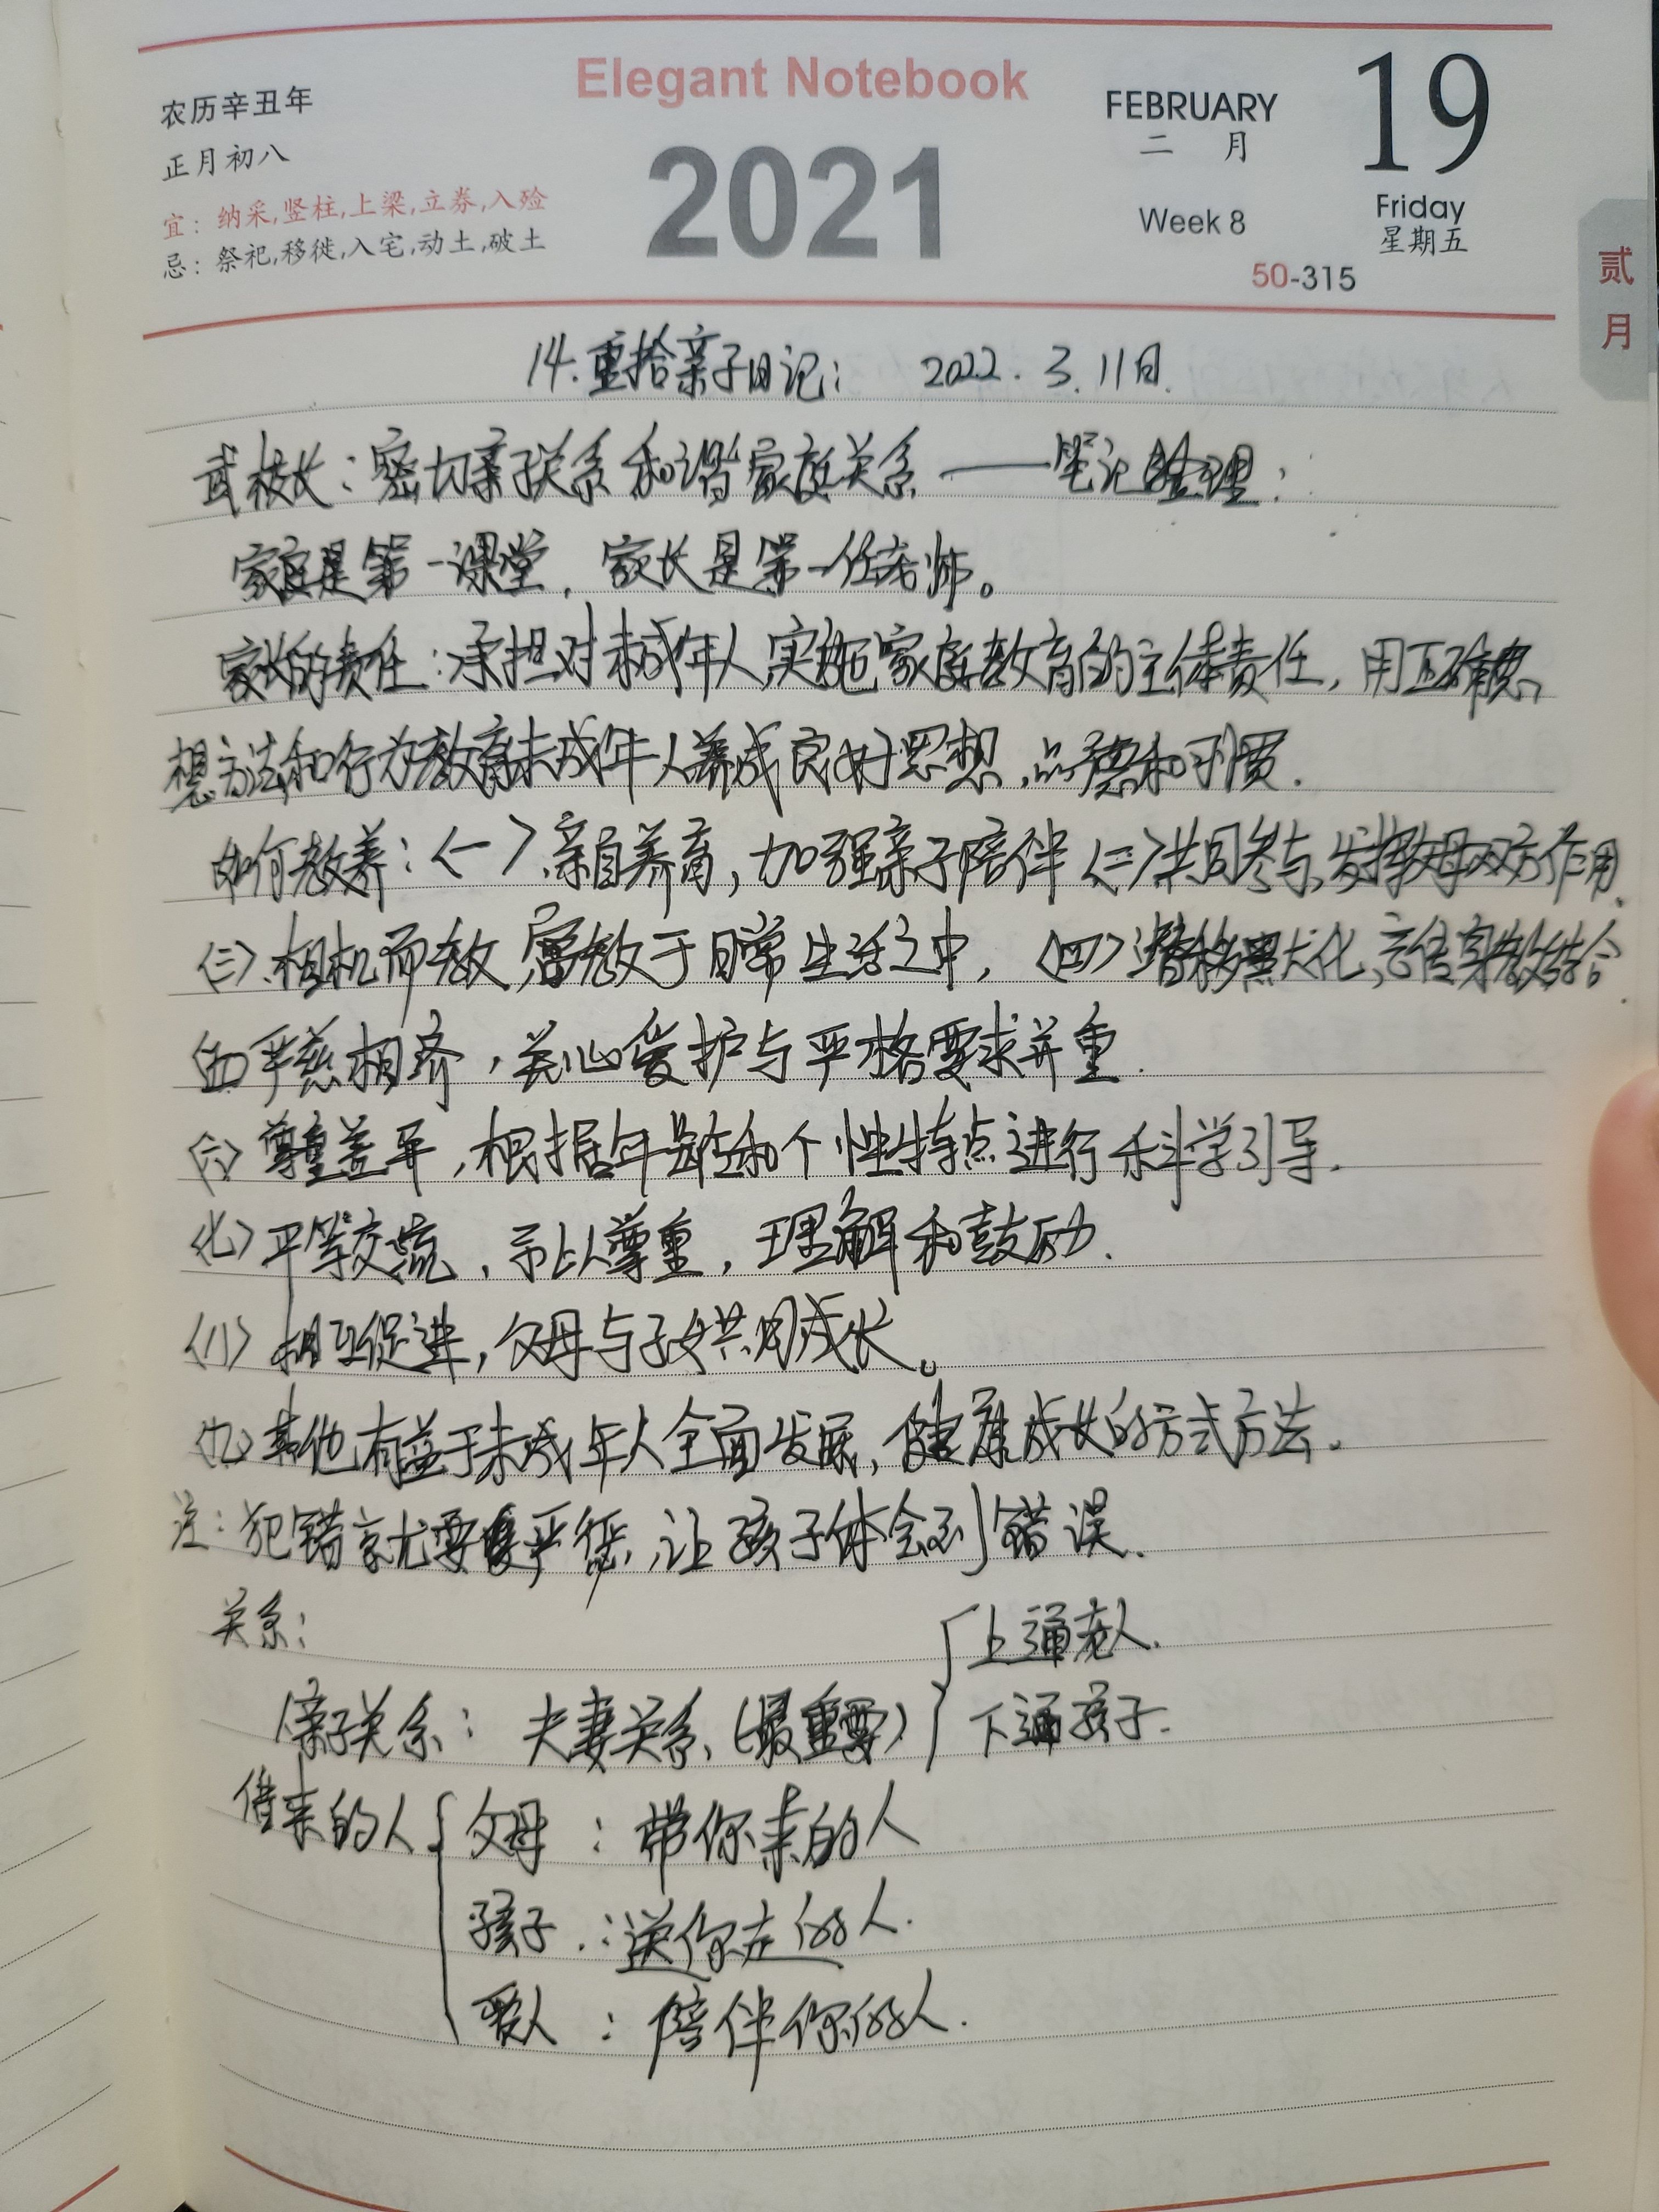 农历辛丑年
正月初八
宜：纳采,竖柱,上梁,立券,入殓
忌：祭祀,移徙,入宅,动土,破土
Elegant Notebook
2021
FEBRUARY
二 月
Week 8
19
Friday
星期五
50-315
贰月
14.重拾亲子日记： 2022.3.11日.
武校长：密切亲子关系和谐家庭关系——笔记整理：
家庭是第一课堂，家长是第一任老师。
家长的责任：承担对未成年人实施家庭教育的主体责任，用正确思
想方法和行为教育未成年人养成良好思想，品德和习惯.
如何教养：〈一〉.亲自养育，加强亲子陪伴〈二〉共同参与，发挥父母双方作用.
〈三〉.相机而教，寓教于日常生活之中，〈四〉潜移默化，言传身教结合.
严慈相济，关心爱护与严格要求并重.
〈六〉尊重差异，根据年龄和个性特点进行科学引导.
〈七〉平等交流，予以尊重，理解和鼓励.
〈八〉相互促进，父母与子女共同成长。
〈九〉其他有益于未成年人全面发展，健康成长的方式方法。
注：犯错言尤要严惩，让孩子体会到错误.
关系：
亲子关系：夫妻关系（最重要）
上通老人.
下通孩子.
借来的人 父母：带你来的人
孩子：送你走的人.
爱人：陪伴你的人.